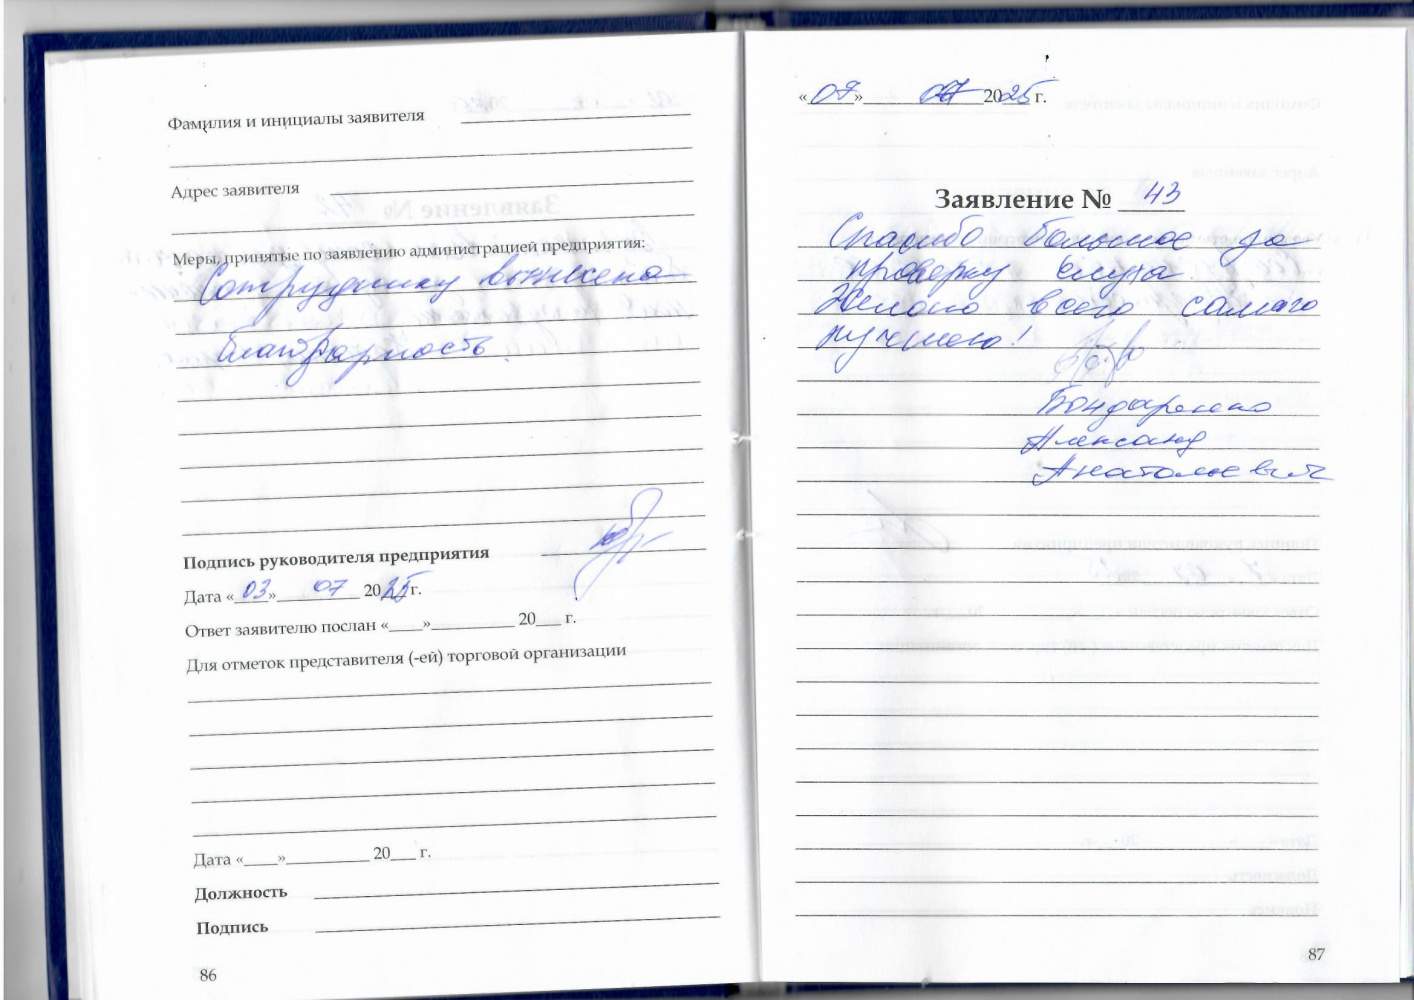 Фамилия и инициалы заявителя
Адрес заявителя
Меры, принятые по заявлению администрацией предприятия:
Сотруднику вынесена
благодарность.
Подпись руководителя предприятия
Дата «03» 07 2025 г.
Ответ заявителю послан «____»__________ 20___ г.
Для отметок представителя (-ей) торговой организации
Дата «____»__________ 20___ г.
Должность
Подпись
86
«07» 07 2025 г.
Заявление № 43
Спасибо большое за
проверку слуха
Желаю всего самого
лучшего!
Бондаренко
Александ
Анатольевич
87